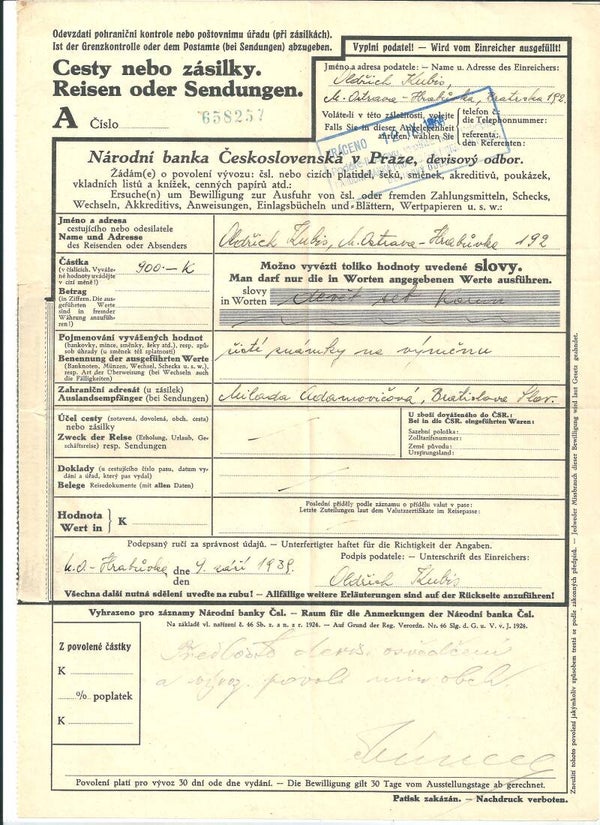 Odevzdati pohraniční kontrole nebo poštovnímu úřadu (při zásilkách).
Ist der Grenzkontrolle oder dem Postamte (bei Sendungen) abzugeben.
Cesty nebo zásilky.
Reisen oder Sendungen.
A Číslo 658257
Vyplní podatel! — Wird vom Einreicher ausgefüllt!
Jméno a adresa podatele: — Name u. Adresse des Einreichers:
Oldřich Kubis,
M. Ostrava-Hrabůvka, 192
Voláteli v této záležitosti, volejte
Falls Sie in dieser Angelegenheit anrufen, wählen Sie
telefon č.
die Telephonnummer:
referenta:
den Referenten:
Národní banka Československá v Praze, devisový odbor.
Žádám(e) o povolení vývozu: čsl. nebo cizích platidel, šeků, směnek, akreditivů, poukázek,
vkladních listů a knížek, cenných papírů atd.:
Ersuche(n) um Bewilligung zur Ausfuhr von čsl. oder fremden Zahlungsmitteln, Schecks,
Wechseln, Akkreditivs, Anweisungen, Einlagsbücheln und-Blättern, Wertpapieren u. s. w.:
Jméno a adresa
cestujícího nebo odesilatele
Name und Adresse
des Reisenden oder Absenders
Oldřich Kubis, M. Ostrava-Hrabůvka 192
Částka
(v číslicích. Vyvážené hodnoty uvádějte v cizí měně!)
Betrag
(in Ziffern. Die ausgeführten Werte sind in fremder Währung anzuführen!)
900.— K
Možno vyvézti toliko hodnoty uvedené slovy.
Man darf nur die in Worten angegebenen Werte ausführen.
slovy
in Worten
devět set korun
Pojmenování vyvážených hodnot
(bankovky, mince, směnky, šeky atd.), resp. způsob úhrady (u směnek též splatnosti)
Benennung der ausgeführten Werte
(Banknoten, Münzen, Wechsel, Schecks u. s. w.), resp. Art der Überweisung (bei Wechseln auch die Fälligkeiten)
známky na výměnu
Zahraniční adresát (u zásilek)
Auslandsempfänger (bei Sendungen)
Milada Adamovičová, Bratislava Slov.
Účel cesty (zotavená, dovolená, obch. cesta)
nebo zásilky
Zweck der Reise (Erholung, Urlaub, Geschäftsreise) resp. Sendungen
U zboží dováženého do ČSR.:
Bei in die ČSR. eingeführten Waren:
Sazební položka:
Zolltarifsnummer:
Země původu:
Ursprungsland:
Doklady (u cestujícího číslo pasu, datum vydání a úřad, který pas vydal)
Belege Reisedokumente (mit allen Daten)
Hodnota
Wert in
K
Poslední příděly podle záznamu o přídělu valut v pase:
Letzte Zuteilungen laut dem Valutazertifikate im Reisepasse:
Podepsaný ručí za správnost údajů. — Unterfertigter haftet für die Richtigkeit der Angaben.
M. O.-Hrabůvka dne 9. září 1939.
den
Podpis podatele: — Unterschrift des Einreichers:
Oldřich Kubis
Všechna další nutná sdělení uveďte na rubu! — Allfällige weitere Erläuterungen sind auf der Rückseite anzuführen!
Vyhrazeno pro záznamy Národní banky Čsl. — Raum für die Anmerkungen der Národní banka Čsl.
Na základě vl. nařízení č. 46 Sb. z. a n. z r. 1924. — Auf Grund der Reg. Verordn. Nr. 46 Slg. d. G. u. V. v. J. 1924.
Z povolené částky
K
% poplatek
K
Povolení platí pro vývoz 30 dní ode dne vydání. — Die Bewilligung gilt 30 Tage vom Ausstellungstage ab gerechnet.
Patisk zakázán. — Nachdruck verboten.
Zneužití tohoto povolení jakýmkoliv způsobem trestá se podle zákonných předpisů. — Jedweder Missbrauch dieser Bewilligung wird laut Gesetz geahndet.